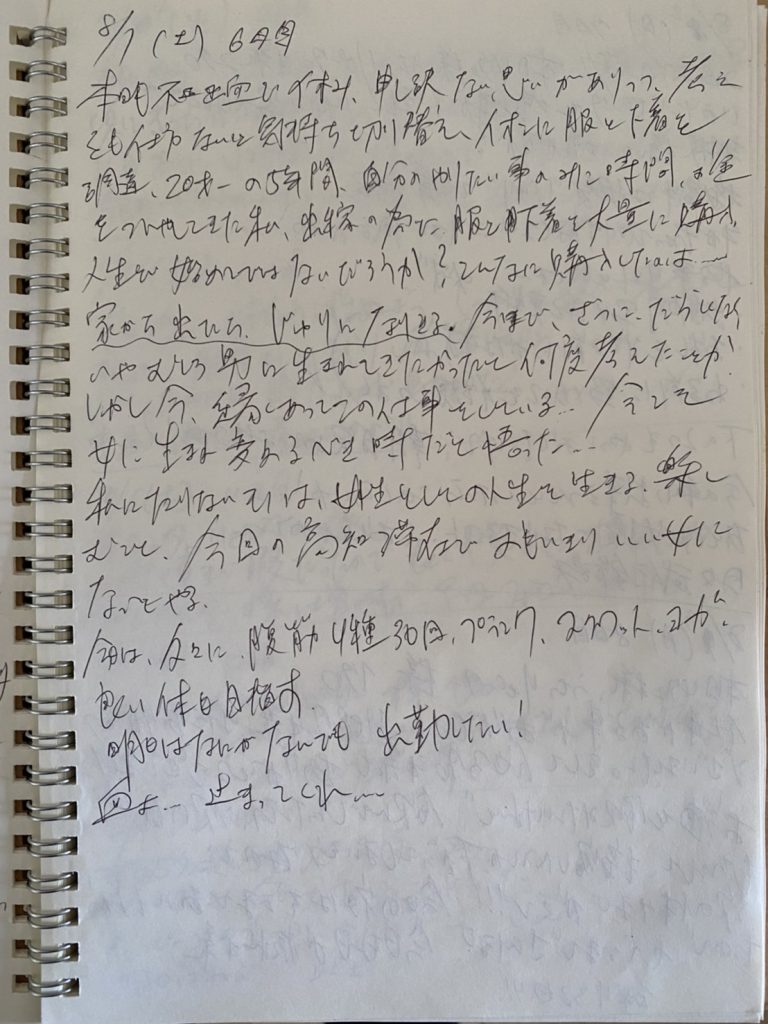 8/7 (土) 6日目
本日も不正出血で休み、申し訳ない思いがありつつ、考え
ても仕方ないと気持ち切り替え、イオンに服と下着を
調達、20才〜の5年間、自分のやりたい事のみに時間、お金
をついやしてきた私、出稼の為に服と下着を大量に購入、
人生で始めてではないだろうか?こんなに購入したのは…
家から出たら、じゃりになりきる。今まで、ざつに、だらしなく
いやむしろ男に生まれてきたかったと何度考えたことか?
しかし今、縁あってこの仕事をしている… 今こそ
女に生まれ変わるべき時だと悟った…
私にたりないモノは、女性としての人生を生きる、楽し
むこと、今回の高知滞在でおもいきりいい女に
なってやる。
今日は、久々に、腹筋4種30回、プランク、スクワット、ヨガ、
良い体を目指す、
明日はなにがなんでも 出勤したい!
血よ… 止まってくれ…